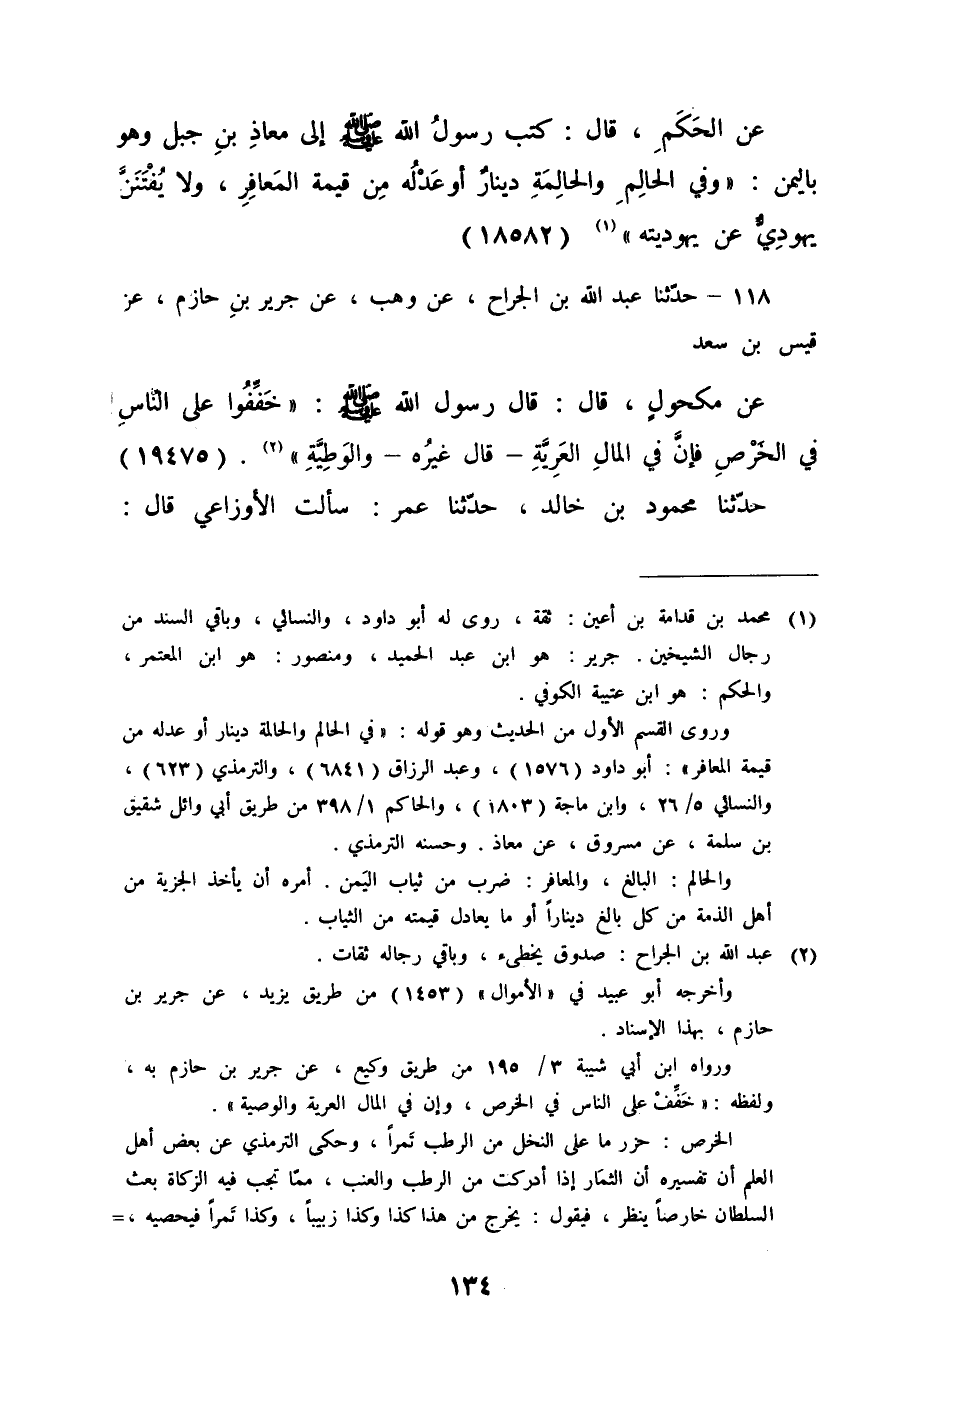 عن الحَكَمِ ، قال : كتب رسولُ الله ﷺ إلى معاذِ بنِ جبل وهو
باليمن : « وفي الحالِمِ والحالِمَةِ دينارٌ أو عَدْلُه مِن قيمة المَعافِرِ ، ولا يُفْتَنَنَّ
يهودِيٌّ عن يهوديته » (١) (١٨٥٨٢)
١١٨ - حدّثنا عبد الله بن الجراح ، عن وهب ، عن جرير بنِ حازم ، عن
قيس بن سعد
عن مكحولٍ ، قال : قال رسول الله ﷺ : « خَفِّفُوا على النَّاسِ
في الخَرْصِ فإنَّ في المالِ العَرِيَّةِ - قال غيرُه - والوَطِيَّةِ » (٢) . (١٩٤٧٥)
حدّثنا محمود بن خالد ، حدّثنا عمر : سألت الأوزاعي قال :
(١) محمد بن قدامة بن أعين : ثقة ، روى له أبو داود ، والنسائي ، وباقي السند من
رجال الشيخين . جرير : هو ابن عبد الحميد ، ومنصور : هو ابن المعتمر ،
والحكم : هو ابن عتيبة الكوفي .
وروى القسم الأول من الحديث وهو قوله : « في الحالم والحالمة دينار أو عدله من
قيمة المعافر » : أبو داود (١٥٧٦) ، وعبد الرزاق (٦٨٤١) ، والترمذي (٦٢٣) ،
والنسائي ٥/ ٢٦ ، وابن ماجة (١٨٠٣) ، والحاكم ١/ ٣٩٨ من طريق أبي وائل شقيق
بن سلمة ، عن مسروق ، عن معاذ . وحسنه الترمذي .
والحالم : البالغ ، والمعافر : ضرب من ثياب اليَمن . أمره أن يأخذ الجزية من
أهل الذمة من كل بالغ ديناراً أو ما يعادل قيمته من الثياب .
(٢) عبد الله بن الجراح : صدوق يخطىء ، وباقي رجاله ثقات .
وأخرجه أبو عبيد في « الأموال » (١٤٥٣) من طريق يزيد ، عن جرير بن
حازم ، بهذا الإسناد .
ورواه ابن أبي شيبة ٣/ ١٩٥ من طريق وكيع ، عن جرير بن حازم به ،
ولفظه : « خَفِّفْ على الناس في الخرص ، وإن في المال العرية والوصية » .
الخرص : حزر ما على النخل من الرطب تَمراً ، وحكى الترمذي عن بعض أهل
العلم أن تفسيره أن الثمَار إذا أدركت من الرطب والعنب ، ممّا تجب فيه الزكاة بعث
السلطان خارصاً ينظر ، فيقول : يخرج من هذا كذا وكذا زبيباً ، وكذا تَمراً فيحصيه ،=
١٣٤